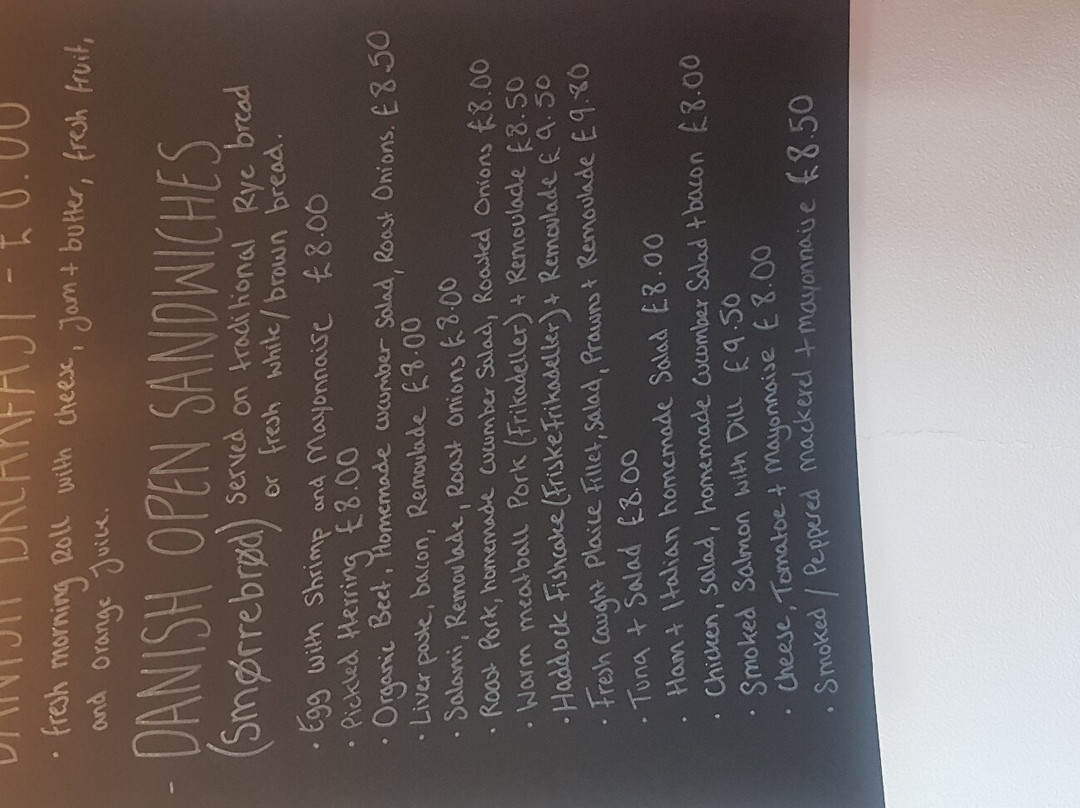 DANISH BREAKFAST - £8.00
· fresh morning Roll with cheese, Jam + butter, fresh fruit,
and orange juice.
- DANISH OPEN SANDWICHES
(Smørrebrød) Served on traditional Rye bread
or fresh white/brown bread.
· Egg with Shrimp and Mayonnaise £8.00
· Pickled Herring £8.00
· Organic Beef, Homemade cucumber Salad, Roast Onions. £8.50
· Liver pate, bacon, Remoulade £8.00
· Salami, Remoulade, Roast onions £8.00
· Roast Pork, homemade cucumber Salad, Roasted Onions £8.00
· Warm meatball Pork (Frikadeller) + Remoulade £8.50
· Haddock Fishcake (FriskeFrikadeller) + Remoulade £9.50
· Fresh Caught Plaice Fillet, Salad, Prawns + Remoulade £9.80
· Tuna + Salad £8.00
· Ham + Italian homemade Salad £8.00
· Chicken, salad, homemade Cucumber Salad + bacon £8.00
· Smoked Salmon with Dill £9.50
· Cheese, Tomatoe + Mayonnaise £8.00
· Smoked / Peppered mackerel + mayonnaise £8.50